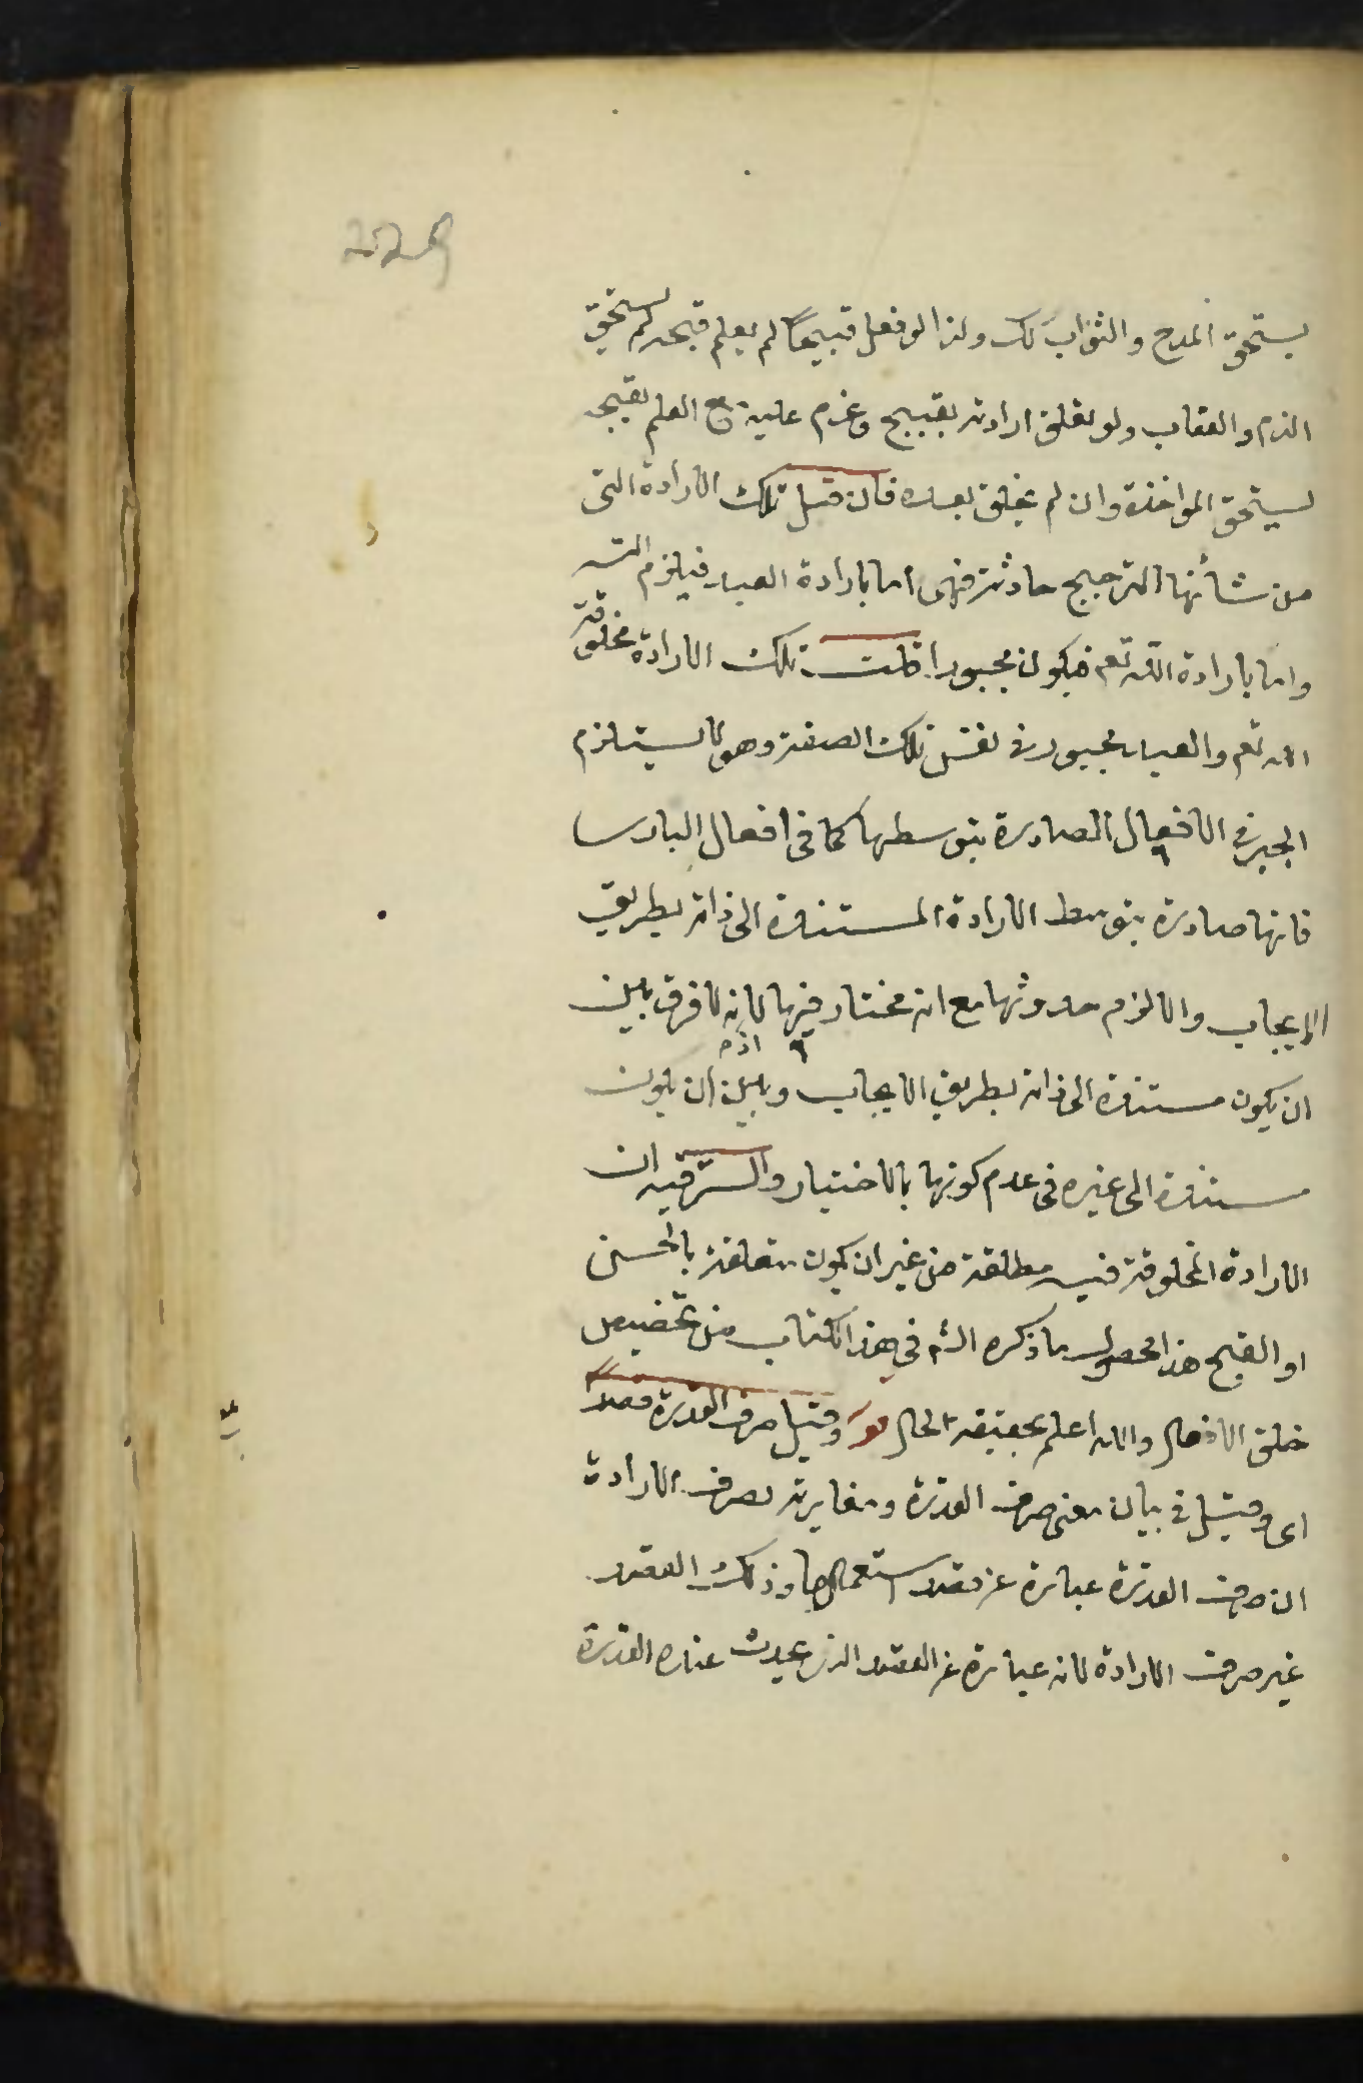 229
يستحق المدح والثواب لك ولذا لو فعل قبيحا لم يعلم قبحه لم يستحق
الذم والعقاب ولو تعلق ارادته بقبيح وعزم عليه مع العلم بقبحه
يستحق المواخذة وان لم يخلق بعده فان قيل تلك الارادة التى
من شأنها الترجيح حادثة فهى اما بارادة العبد فيلزم التسه
واما بارادة الله تعم فيكون مجبورا قلت تلك الارادة مخلوقة
الله تعم والعبد مجبور فى نفس تلك الصفة وهو لا يستلزم
الجبر فى الافعال الصادرة بتوسطها كما فى افعال البارى
فانها صادرة بتوسط الارادة المستندة الى ذاته بطريق
الايجاب والا لزم حدوثها مع انه مختار فيها لانه لا فرق بين
ان يكون مستندة الى ذاته بطريق الايجاب وبين ان يكون
مستندة الى غيره فى عدم كونها بالاختيار والسر فيه ان
الارادة المخلوقة فيه مطلقة من غير ان يكون متعلقة بالحسن
او القبح هذا محصول ما ذكره فى هذا الكتاب من تخصيص
خلق الافعال والله اعلم بحقيقة الحال قو وقيل صرف القدرة قصد
اى وقيل فى بيان معنى صرف القدرة ومغايرته لصرف الارادة
ان صرف القدرة عبارة عن قصد استعمالها وذلك القصد
غير صرف الارادة لانه عبارة عن القصد الذى يحدث عنده القدرة